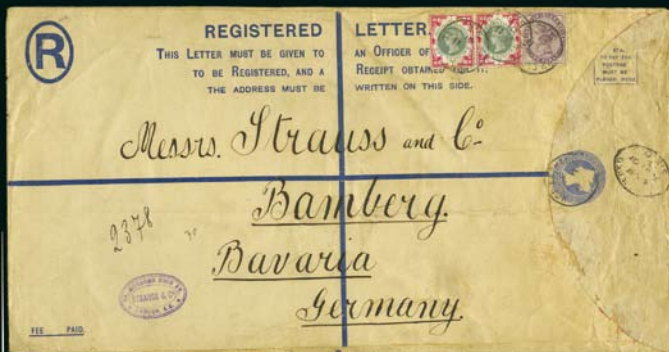 R
REGISTERED LETTER.
THIS LETTER MUST BE GIVEN TO AN OFFICER OF
TO BE REGISTERED, AND A RECEIPT OBTAINED FOR IT.
THE ADDRESS MUST BE WRITTEN ON THIS SIDE.
Messrs. Strauss and Co.
Bamberg.
Bavaria
Germany.
2378
STRAUSS & CO
FEE PAID.